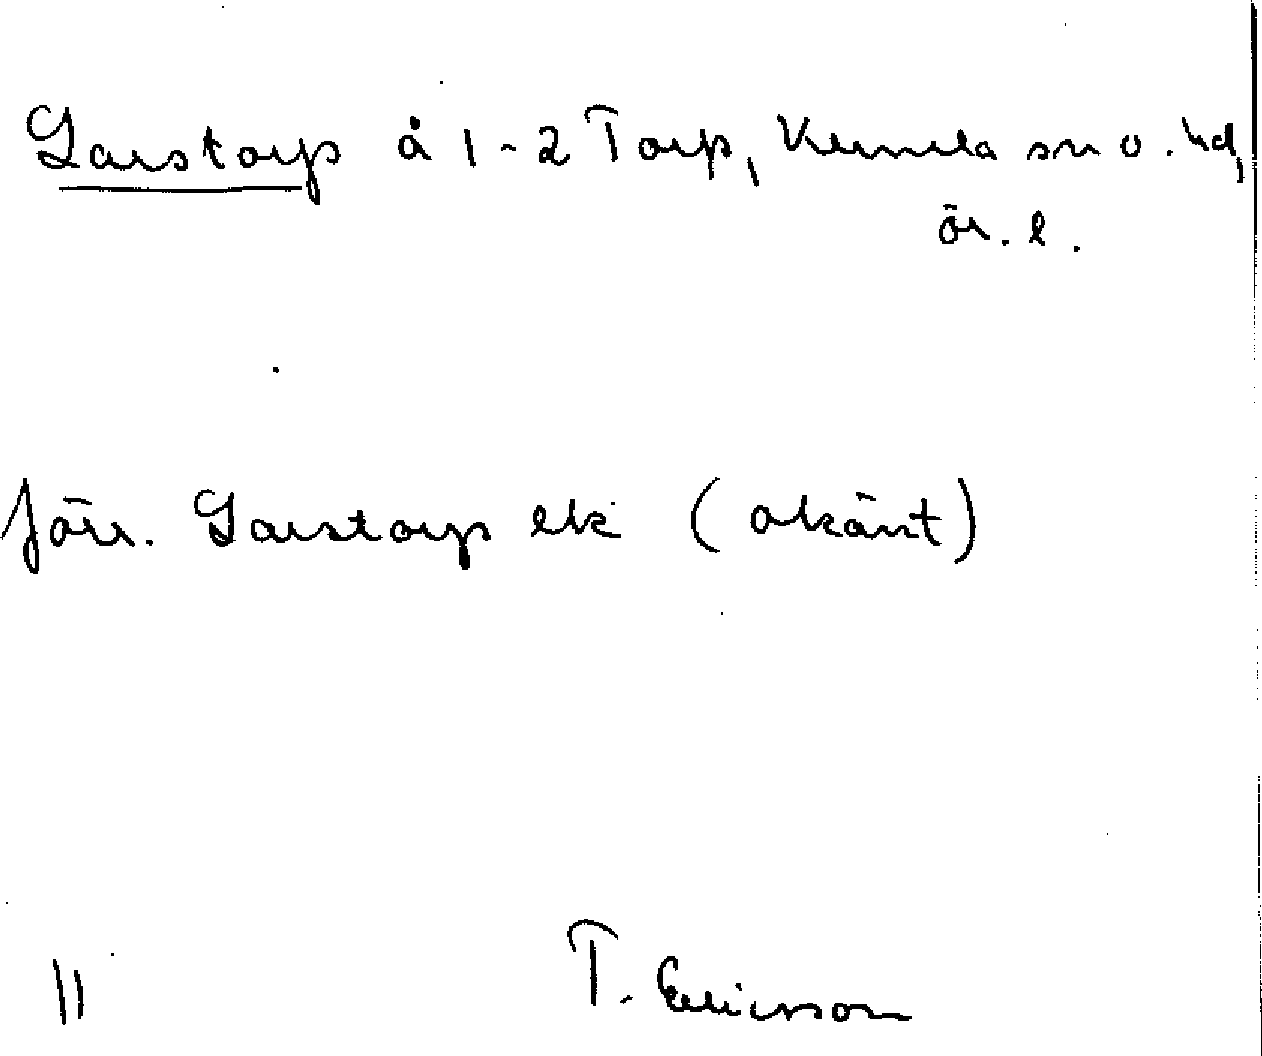 Larstorp å 1-2 Torp, Kumla sn o. hd,
ör. l.
förr. Larstorp ek (okänt)
11 T. Ericsson